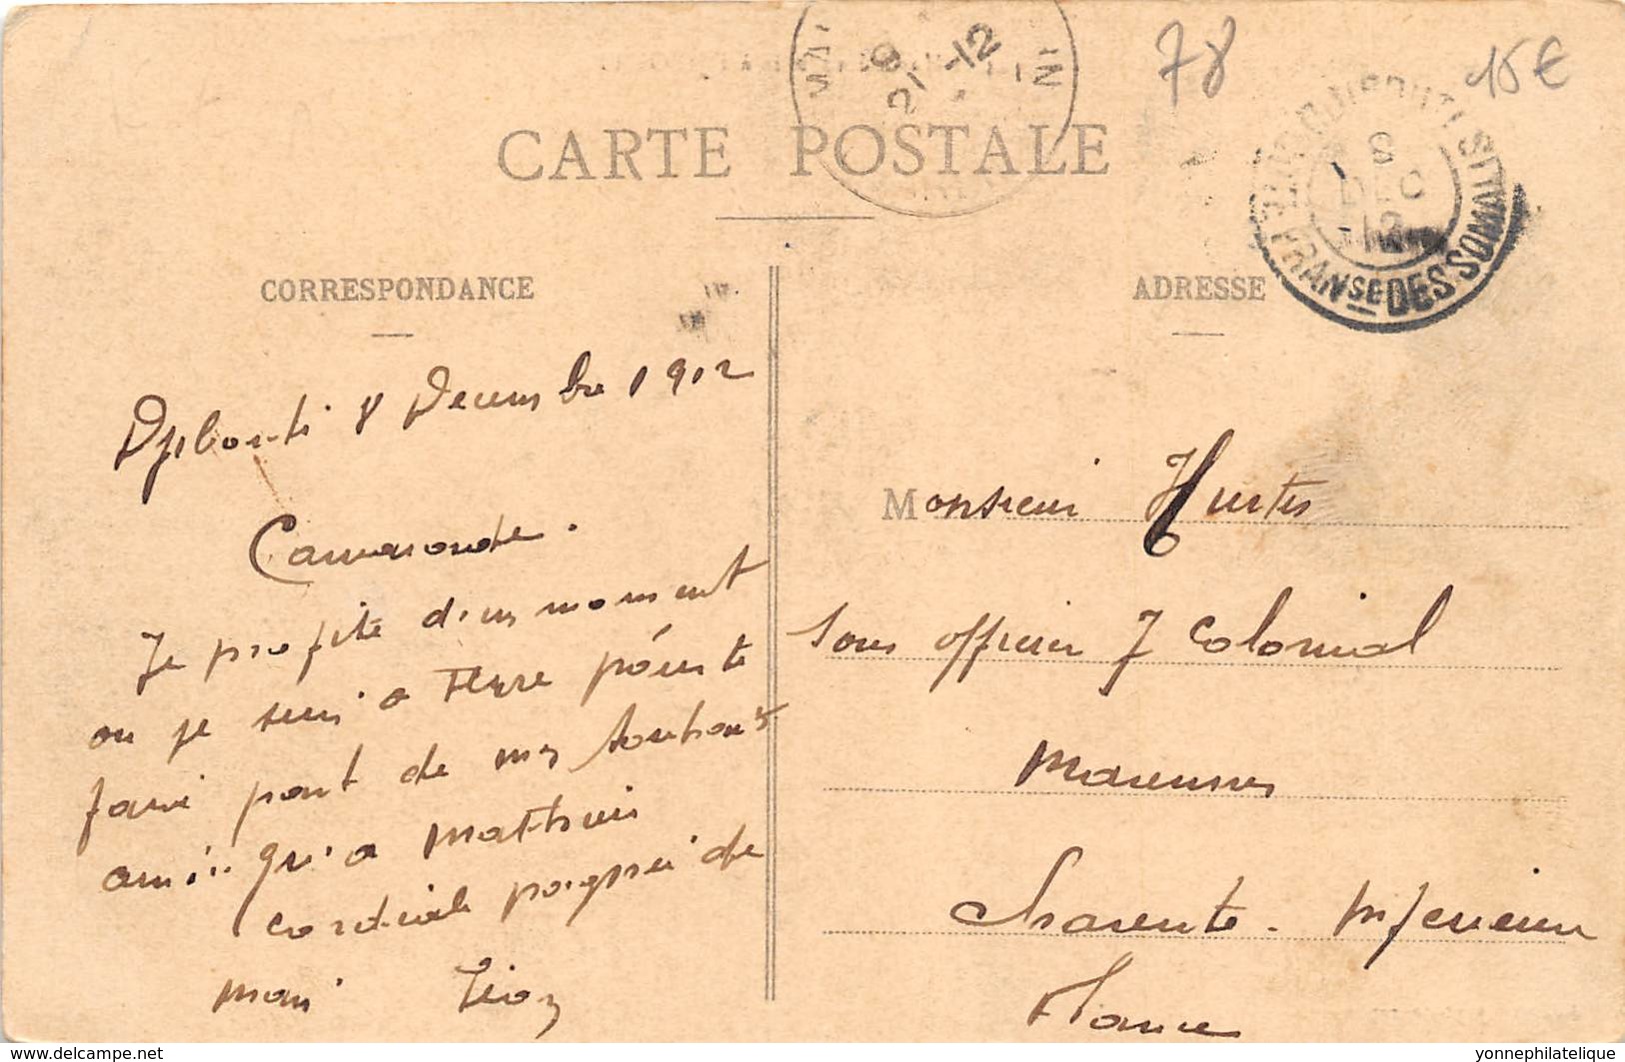 78
15€
21-12
CARTE POSTALE
CORRESPONDANCE
ADRESSE
8
DEC
12
FRANSE DES SOMALIS
Djibouti 8 Decembre 1912
Camarade.
Je profite d'un moment
ou je suis a terre pour te
faire part de mes
amis qu'a
cordiale poignée de
main
Monsieur Hurtes
Sous officier 7 Colonial
Marennes
Charente-Inferieure
France
www.delcampe.net
yonnephilatelie